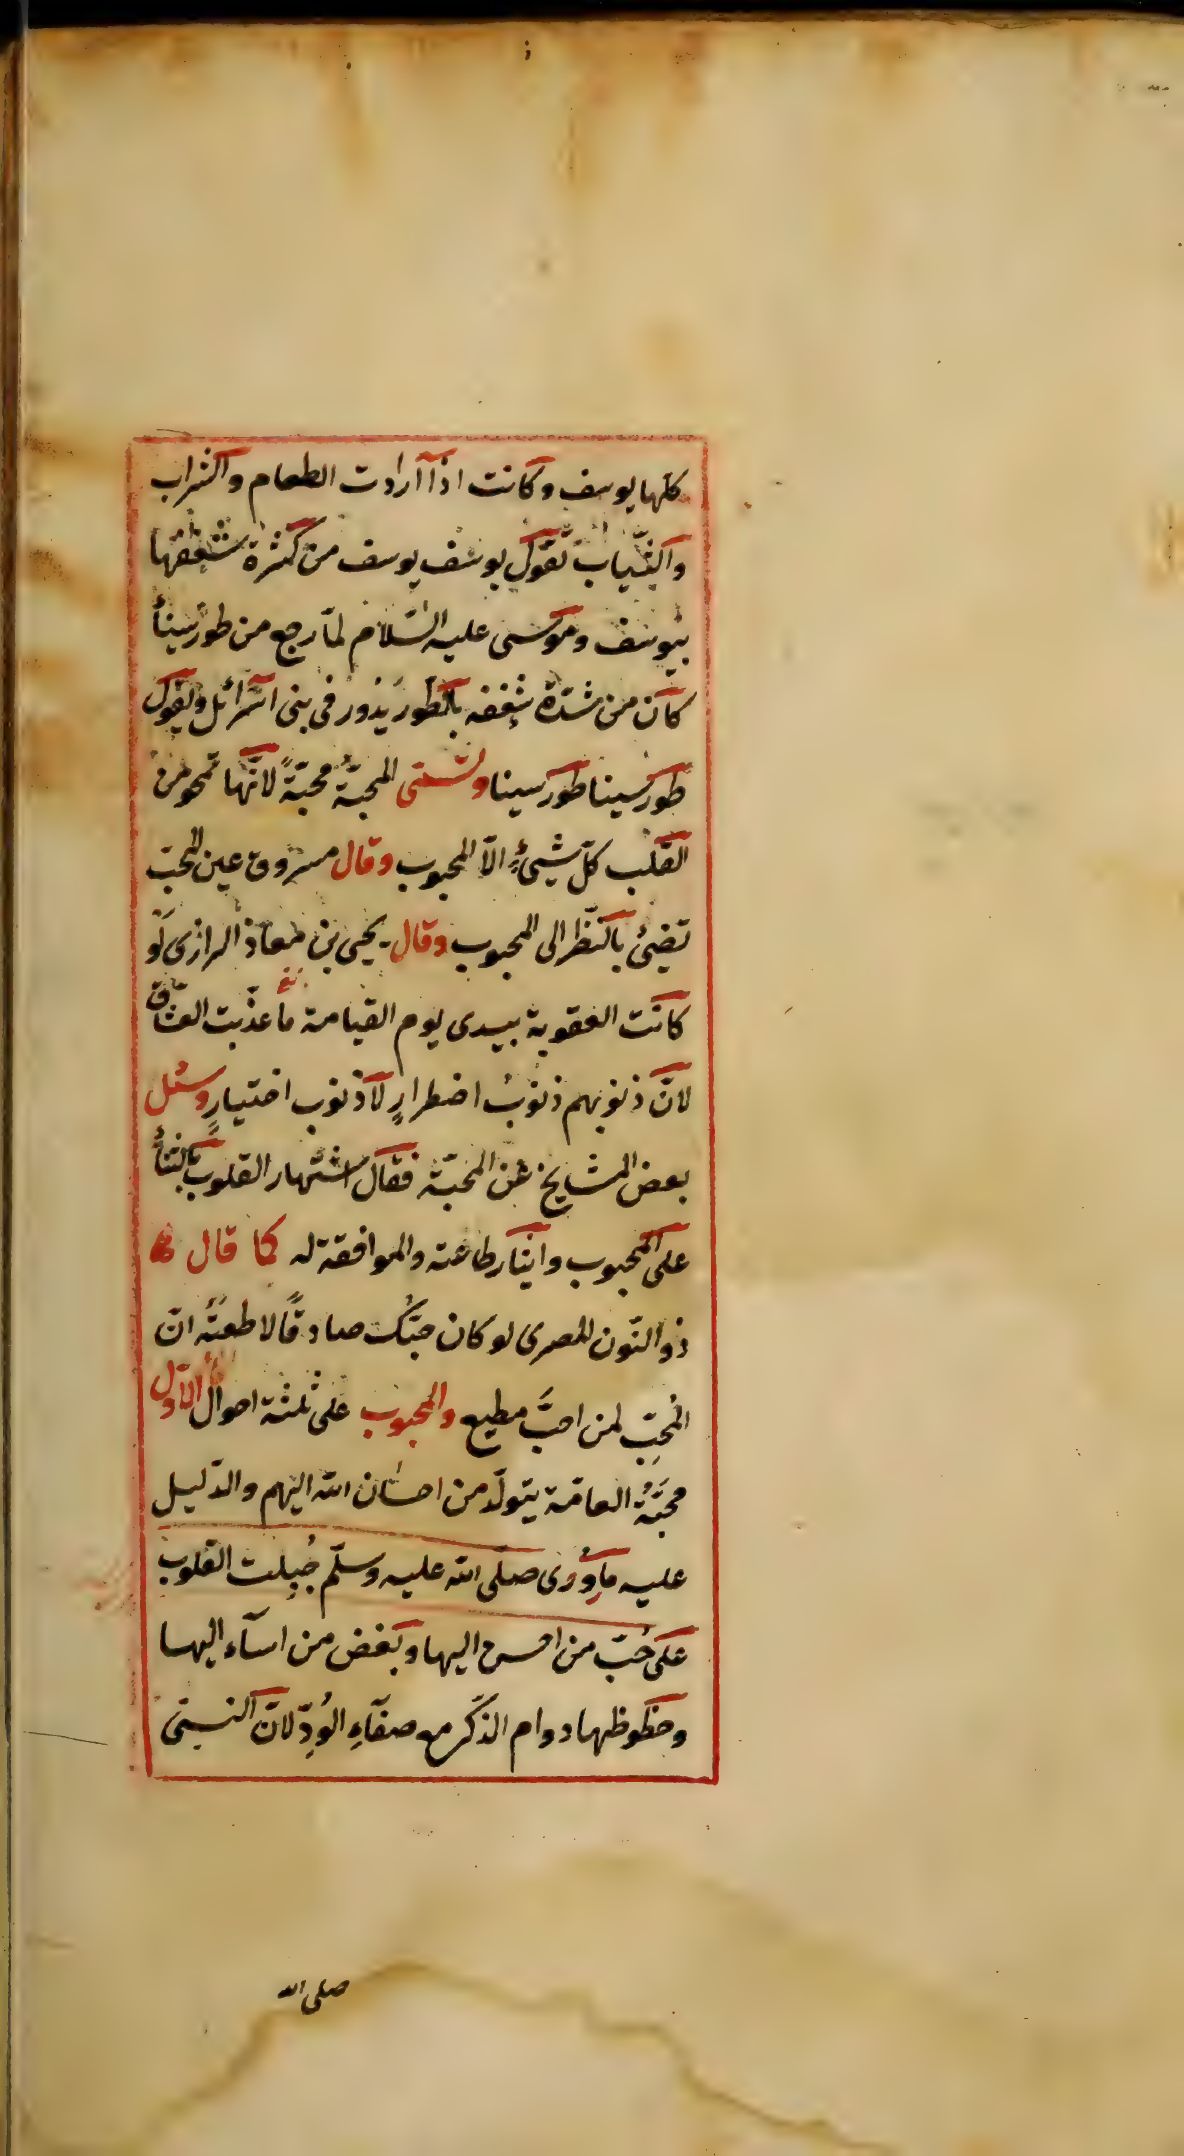 كلها يوسف وكانت اذا آرادت الطعام والشراب
والثّياب تقول يوسف يوسف من كثرة شغفها
بيوسف وموسى عليه السّلام لمّا رجع من طور سيناء
كان من شدّة شغفه بالطور يدور فى بنى اسرائل ويقول
طور سينا طور سينا وتسمّى المحبّة محبّةً لانّها تمحو من
القلب كلّ شيئ الّا المحبوب وقال مسروق عين المحبّ
تضيئ بالنّظر الى المحبوب وقال يحيى بن معاذ الرازى لو
كانت العقوبة بيدى يوم القيامة ما عذّبت العشّاق
لانّ ذنوبهم ذنوبُ اضطرارٍ لا ذنوب اختيارٍ وسئل
بعض المشايخ عن المحبّة فقال اشتهار القلوب بالثناء
على المحبوب وايثار طاعته والموافقة له كما قال
ذو النّون المصرى لو كان حبّك صادقًا لاطعتَهُ انّ
المُحِبّ لمن احبَّ مطيع والمحبوب على ثلثة احوال الاوّل
محبّةُ العامّة يتولّد من احسان الله اليهم والدّليل
عليه ما رُوى صلّى الله عليه وسلّم جُبِلت القلوب
على حُبّ من احسن اليها وبُغض من اسآء اليها
وحظوظها دوام الذكر مع صفآءِ الوُدّ لانّ النبىّ
صلى الله